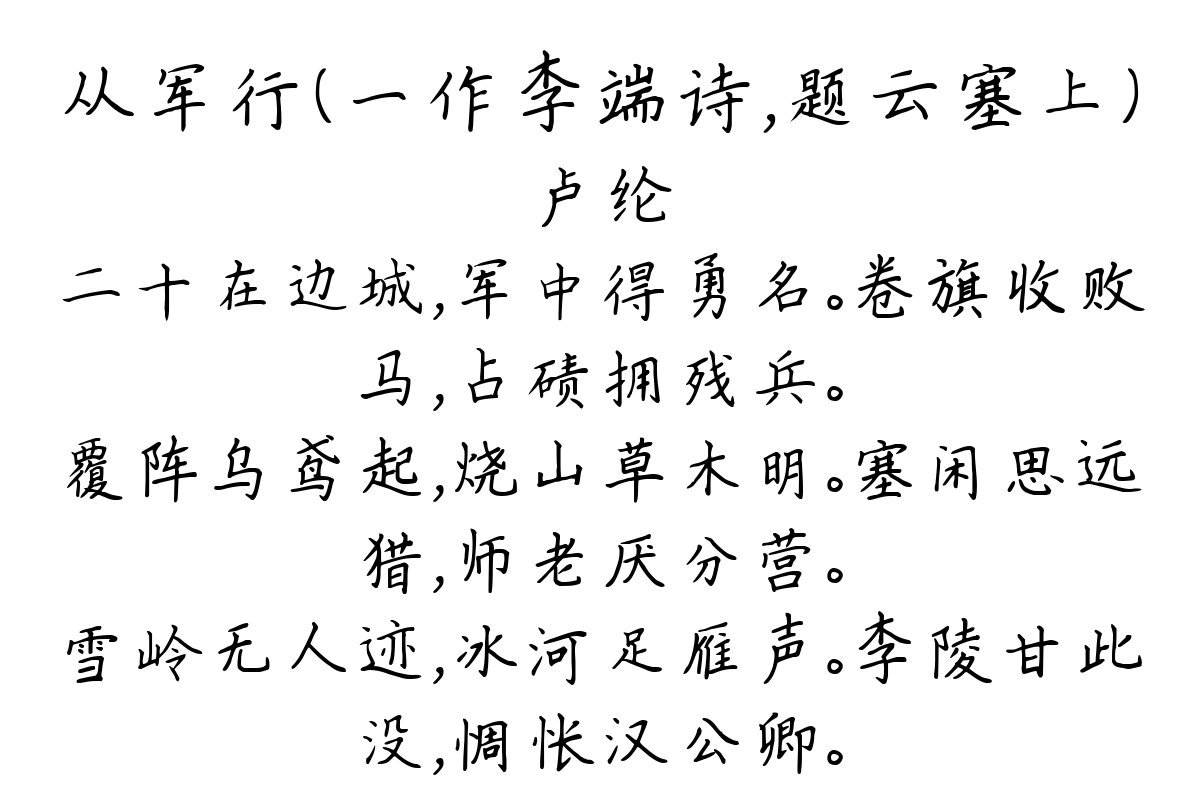 从军行(一作李端诗,题云塞上)
卢纶
二十在边城,军中得勇名。卷旗收败
马,占碛拥残兵。
覆阵乌鸢起,烧山草木明。塞闲思远
猎,师老厌分营。
雪岭无人迹,冰河足雁声。李陵甘此
没,惆怅汉公卿。